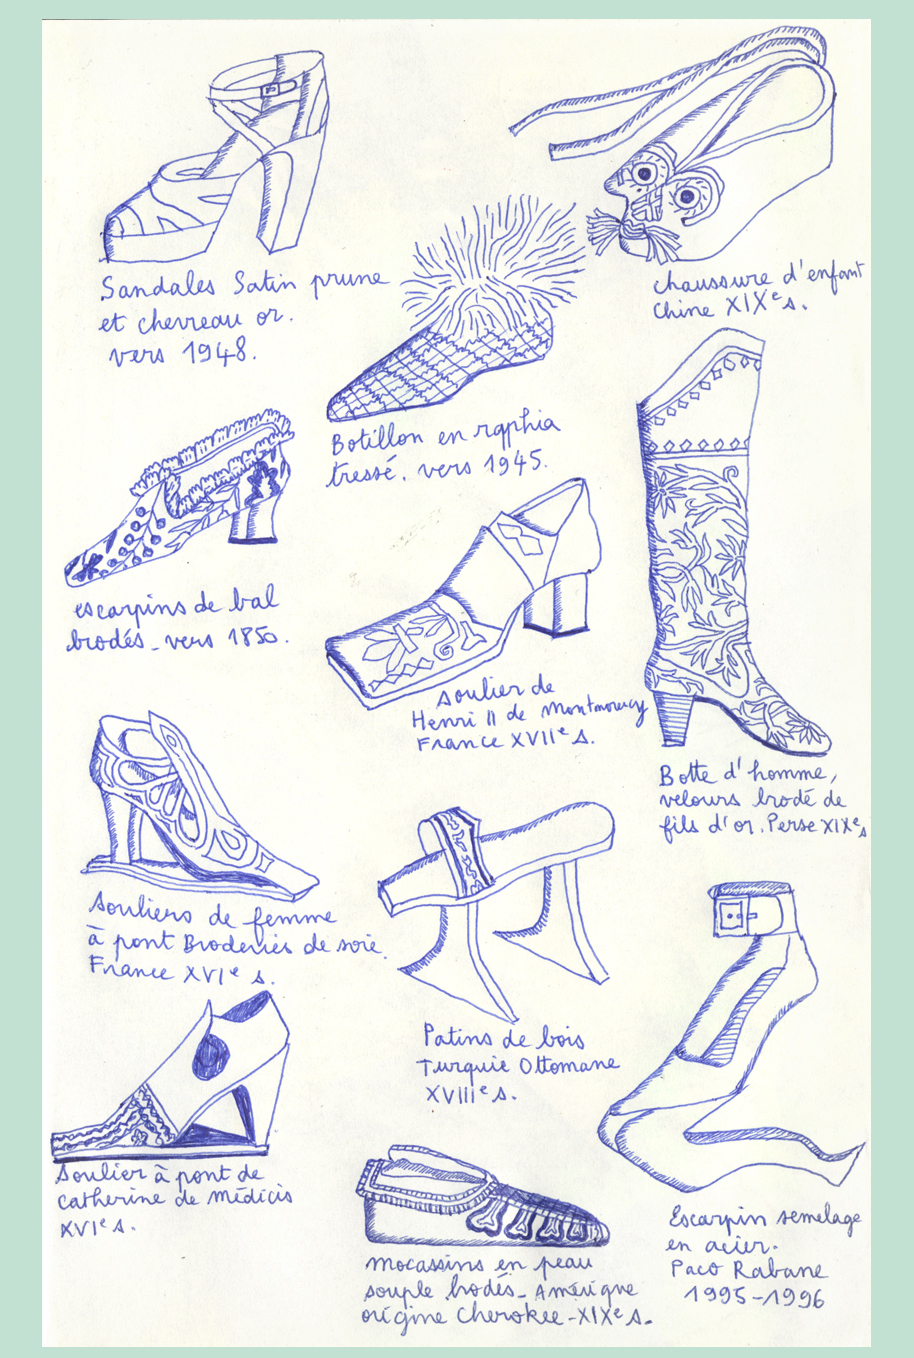 Sandales Satin prune
et chevreau or.
vers 1948.
chaussure d'enfant
Chine XIXe s.
Botillon en raphia
tressé. vers 1945.
escarpins de bal
brodés_vers 1850.
soulier de
Henri II de Montmorency
France XVIIe s.
Botte d'homme,
velours brodé de
fils d'or. Perse XIXe s
Souliers de femme
à pont Broderies de soie.
France XVIe s.
Patins de bois
Turquie Ottomane
XVIIIe s.
Soulier à pont de
Catherine de Médicis
XVIe s.
Mocassins en peau
souple brodés_Amérique
origine Cherokee-XIXe s.
Escarpin semelage
en acier.
Paco Rabane
1995-1996